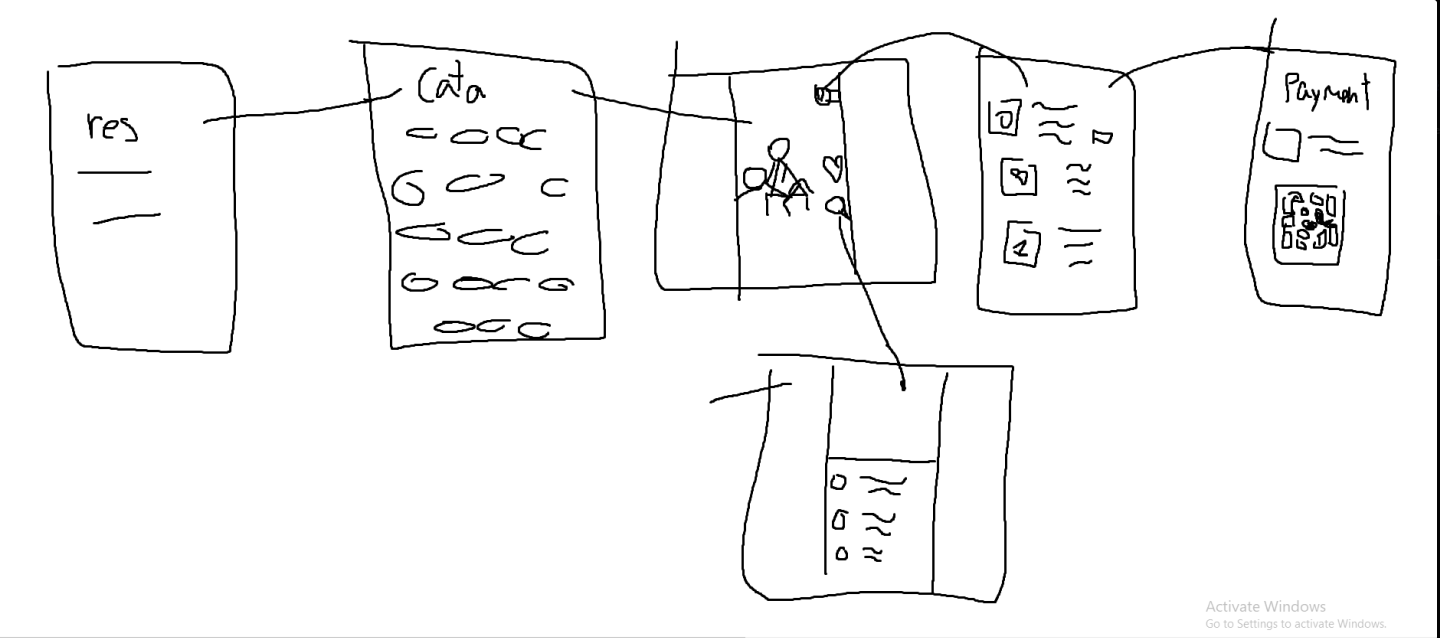 res
Cata
Payment
0
8
1
Activate Windows
Go to Settings to activate Windows.